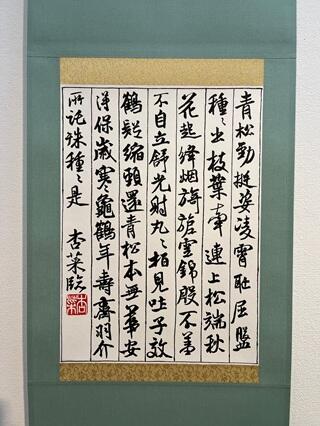 青松勁挺姿凌霄耻屈盤
種〻出枝葉牽連上松端秋
花起絳烟旖旎雲錦殷不羞
不自立舒光射丸〻柏見吐子效
鶴疑縮頸還青松本無華安
得保歲寒龜鶴年壽齊羽介
所託殊種〻是 杏臨